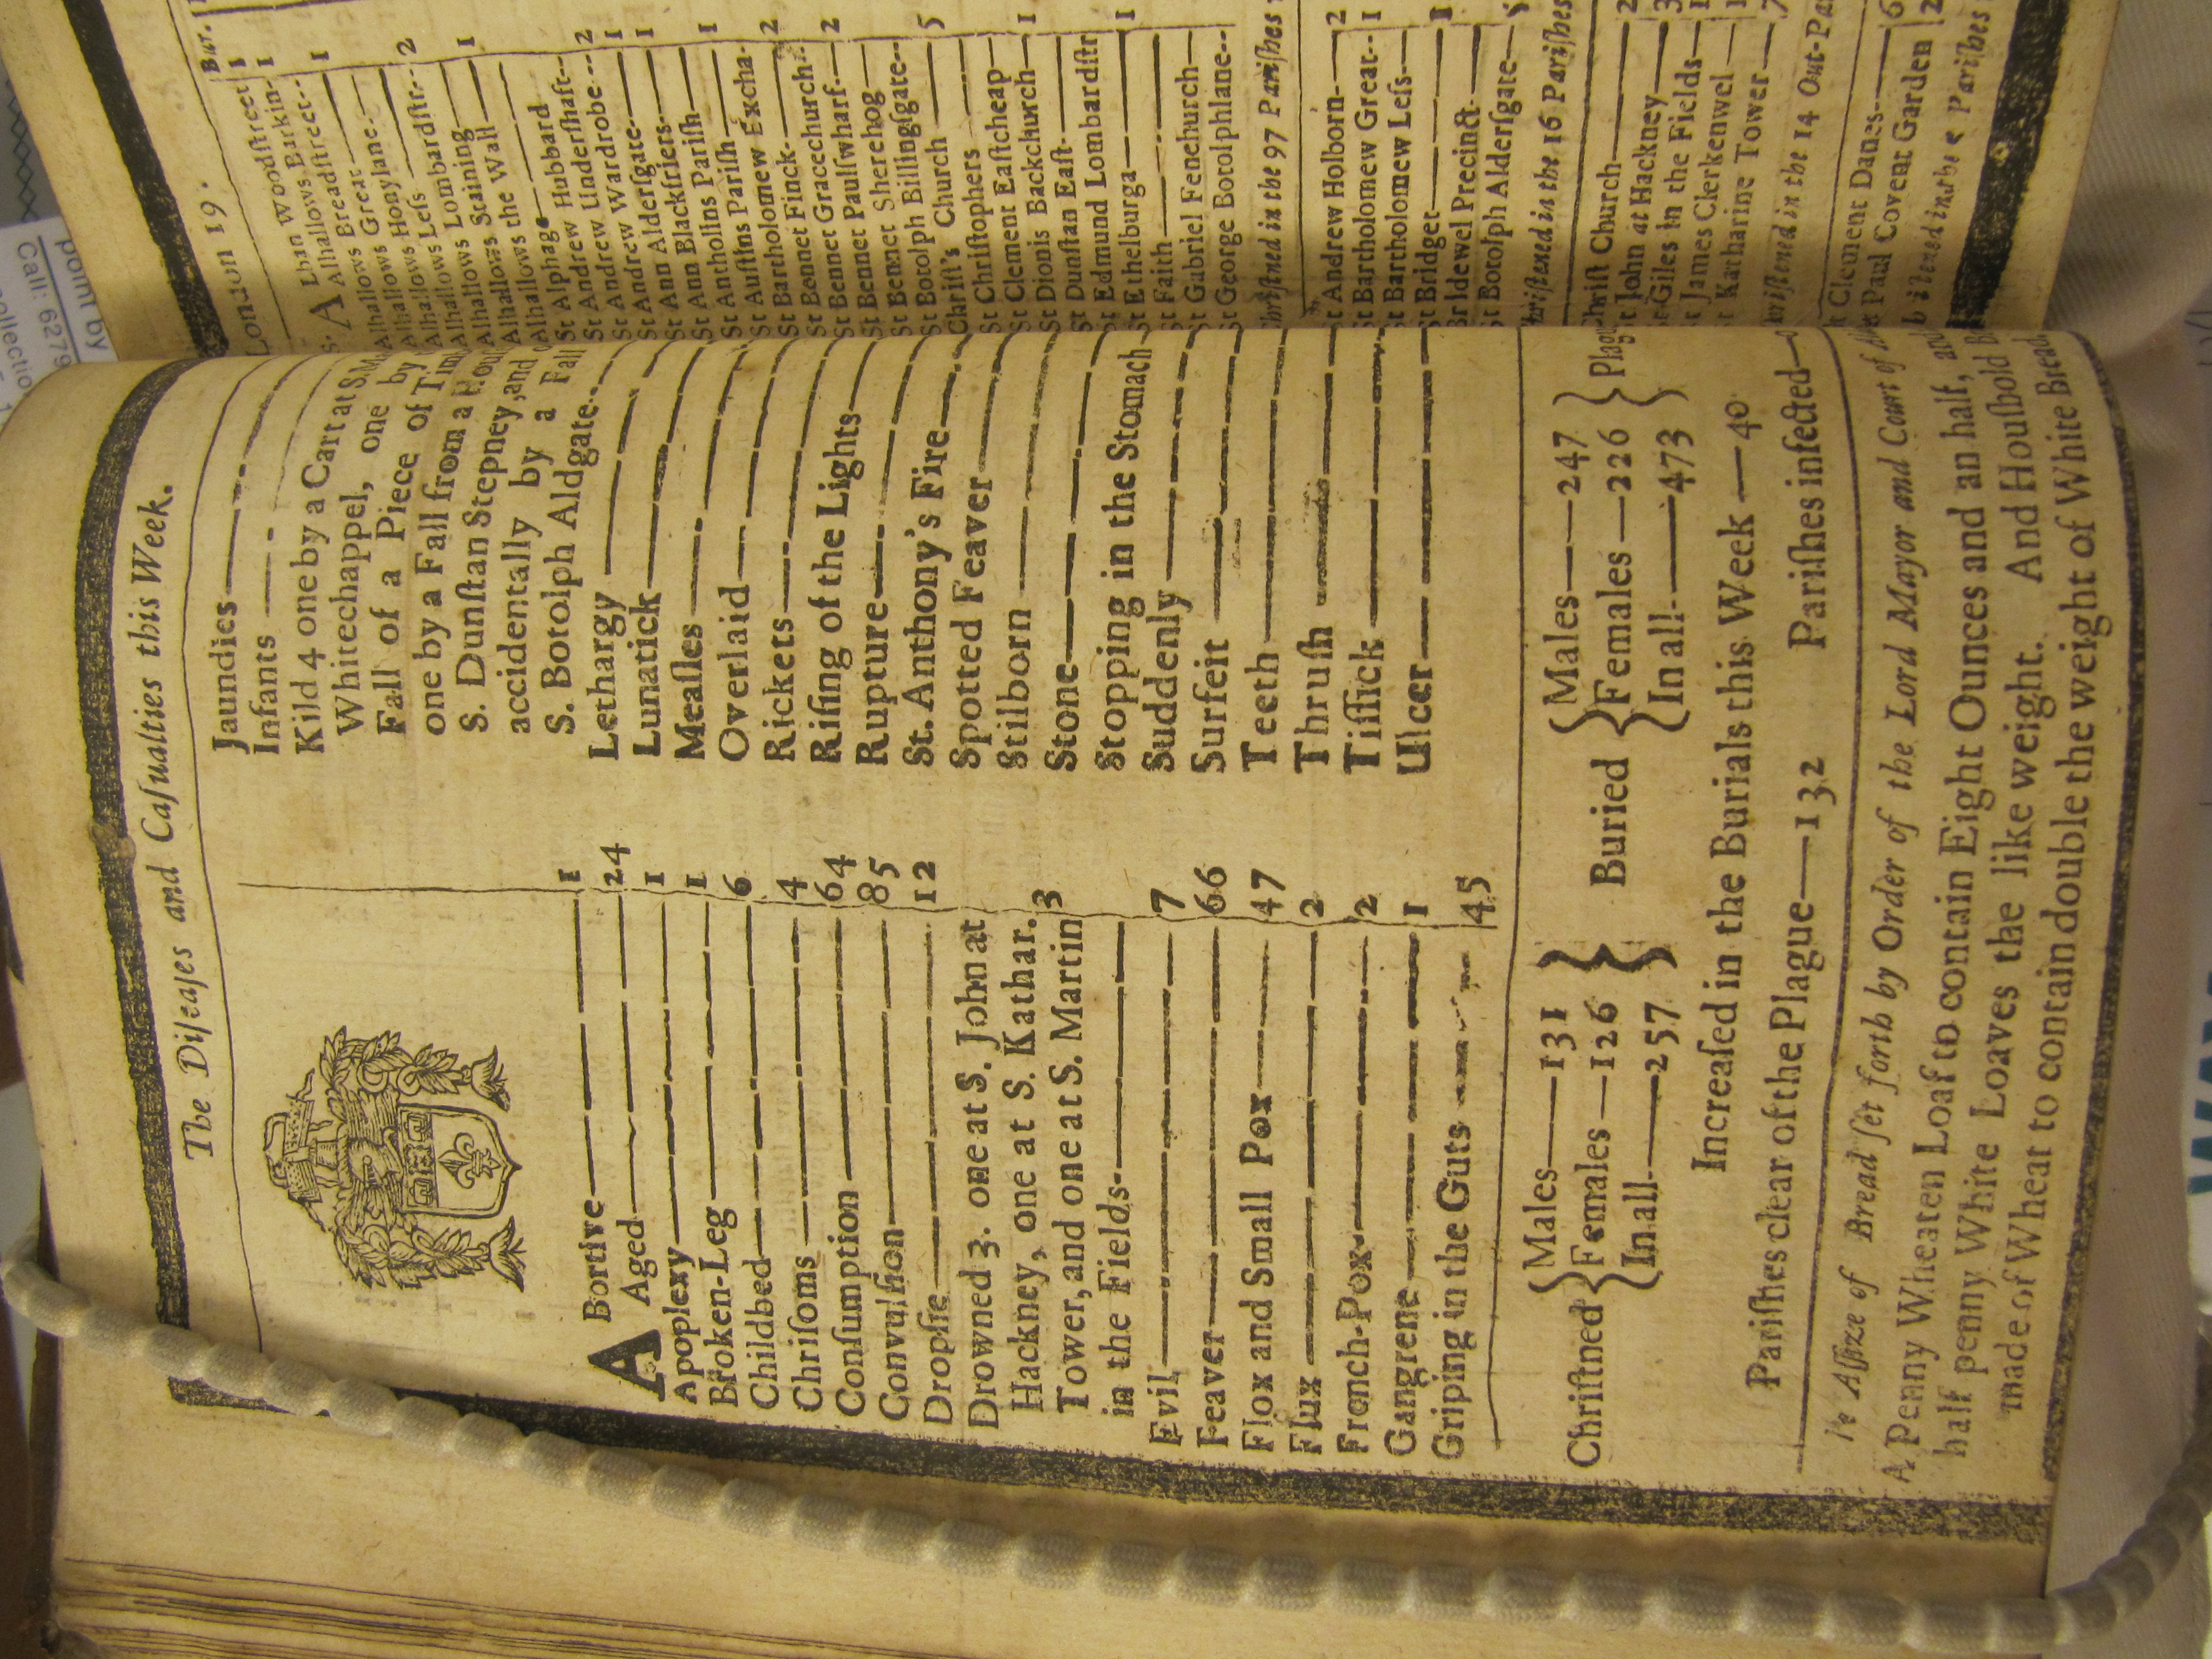 The Diſeaſes and Caſualties this Week.
ABortive 1
Aged 24
Apoplexy 1
Broken-Leg 1
Childbed 6
Chriſoms 4
Conſumption 64
Convulſion 85
Dropſie 12
Drowned 3. one at S. John at
Hackney, one at S. Kathar.
Tower, and one at S. Martin
in the Fields 3
Evil 7
Feaver 66
Flox and Small Pox 47
Flux 2
French-Pox 2
Gangrene 1
Griping in the Guts 45
Jaundies
Infants
Kild 4 one by a Cart at S. M
Whitechappel, one by
Fall of a Piece of Tim
one by a Fall from a Hou
S. Dunſtan Stepney, and
accidentally by a Fall
S. Botolph Aldgate
Lethargy
Lunatick
Meaſles
Overlaid
Rickets
Riſing of the Lights
Rupture
St. Anthony's Fire
Spotted Feaver
Stilborn
Stone
Stopping in the Stomach
Suddenly
Surfeit
Teeth
Thruſh
Tiſſick
Ulcer
Chriſtned { Males 131 Females 126 In all 257 }
Buried { Males 247 Females 226 In all 473 } Plag
Increaſed in the Burials this Week 40
Pariſhes clear of the Plague 132 Pariſhes infected
Aſſize of Bread ſet forth by Order of the Lord Mayor and Court of
A Penny Wheaten Loaf to contain Eight Ounces and an half, and
half penny White Loaves the like weight. And Houſhold B
made of Wheat to contain double the weight of White Bread
London 19. Bur.
Lhan Woodſtreet 1
Alhallows Barkin 1
Alhallows Breadſtreet 1
Alhallows Great
Alhallows Honylane
Alhallows Leſs 2
Alhallows Lombardſtr
Alhallows Staining 1
Alhallows the Wall
St Alphage
St Andrew Hubbard
St Andrew Underſhaft 2
St Andrew Wardrobe 1
St Ann Alderſgate 1
St Ann Blackfriers
St Antholins Pariſh 1
St Auſtins Pariſh
St Bartholomew Excha. 2
St Bennet Finck
St Bennet Gracechurch 2
St Bennet Paulſwharf
St Bennet Sherehog
St Botolph Billingſgate
Chriſt's Church 5
St Chriſtophers
St Clement Eaſtcheap
St Dionis Backchurch 1
St Dunſtan Eaſt
St Edmund Lombardſtr
St Ethelburga 1
St Faith
St Gabriel Fenchurch
St George Botolphlane
Chriſtned in the 97 Pariſhes
St Andrew Holborn 2
St Bartholomew Great 1
St Bartholomew Leſs
St Bridget 1
Bridewel Precinct
St Botolph Alderſgate
Chriſtened in the 16 Pariſhes
Chriſt Church 2
St John at Hackney 3
St Giles in the Fields
St James Clerkenwel
St Katharine Tower 7
Chriſtened in the 14 Out-Pa
St Clement Danes 6
St Paul Covent Garden 2
Pariſhes
point by
Call: 6279